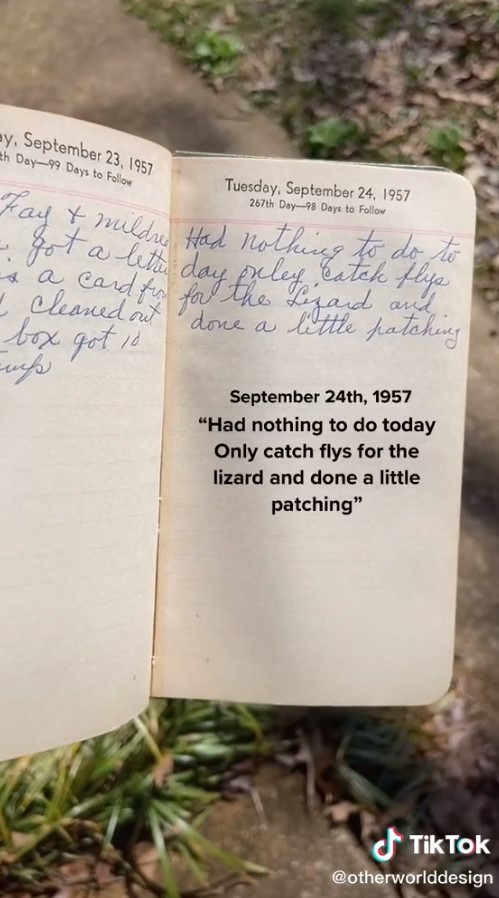 ay, September 23, 1957
th Day—99 Days to Follow
Fay & mildre
got a letter
is a card from
cleaned out
box got 10
Tuesday, September 24, 1957
267th Day—98 Days to Follow
Had nothing to do to
day onley catch flys
for the Lizard and
done a little patching
September 24th, 1957
“Had nothing to do today
Only catch flys for the
lizard and done a little
patching”
TikTok
@otherworlddesign